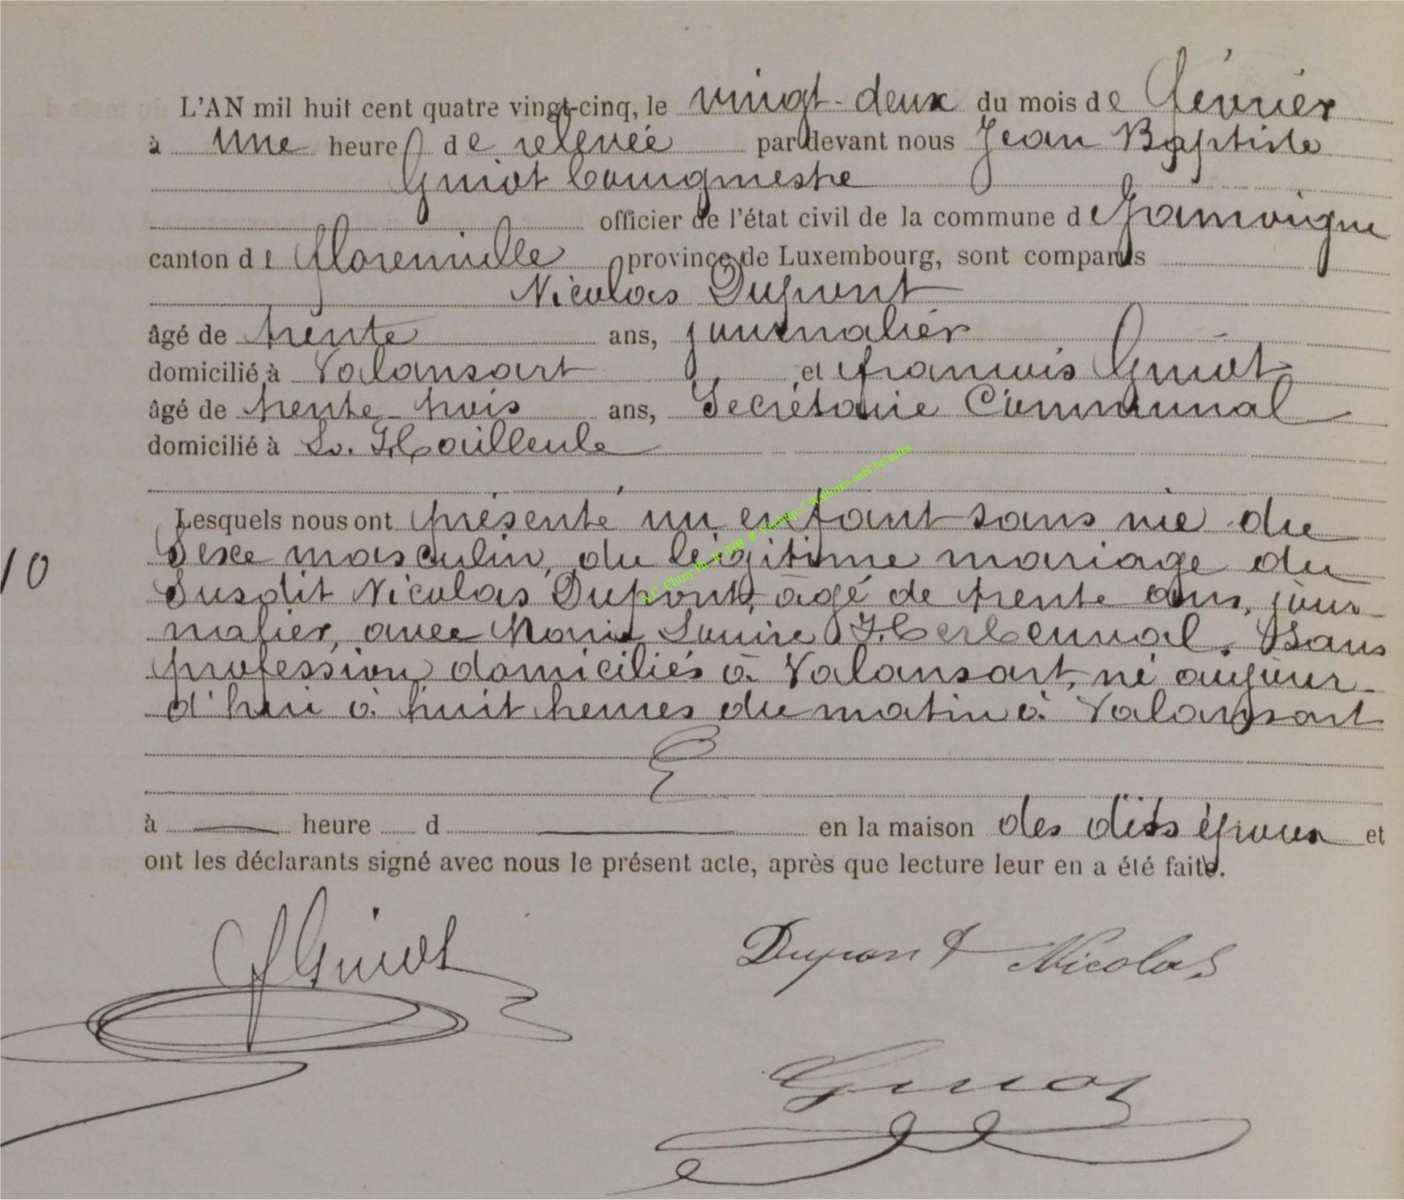 L'AN mil huit cent quatre vingt-cinq, le vingt-deux du mois de février
à une heure de relevée par devant nous Jean Baptiste
Guiot bourgmestre
officier de l'état civil de la commune de Jamoigne
canton de Florenville province de Luxembourg, sont comparus
Nicolas Dupont
âgé de trente ans, journalier
domicilié à Valansart et francois Guiot
âgé de trente-trois ans, Secrétaire Communal
domicilié à La Hailleule
Lesquels nous ont présenté un enfant sans vie du
Sexe masculin, du légitime mariage du
Susdit Nicolas Dupont, âgé de trente ans, jour-
nalier, avec Marie Louise Herbeuval, Sans
profession domiciliés à Valansart, né aujour-
d'hui à huit heures du matin à Valansart
10
à heure d en la maison des dits époux et
ont les déclarants signé avec nous le présent acte, après que lecture leur en a été faite.
f Guiot
Dupont Nicolas
Guiot